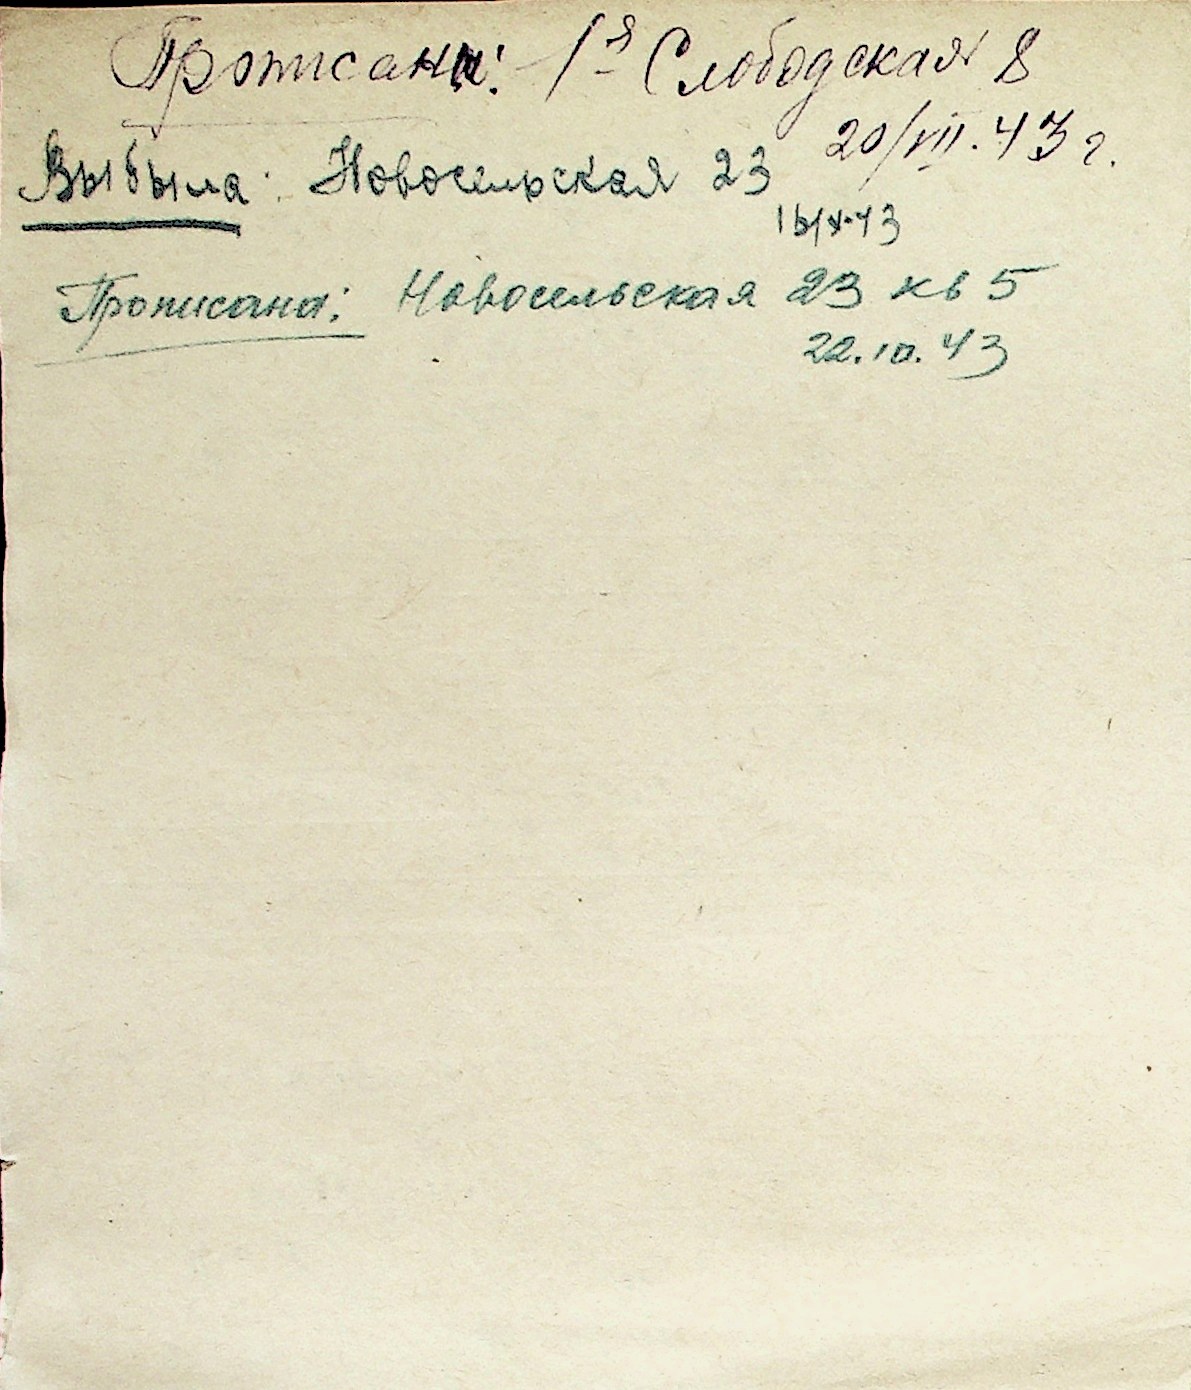 Прописана: 1-я Слободская 8
20/VII.43 г.
Выбыла: Новосельская 23
16/X-43
Прописана: Новосельская 23 кв 5
22.10.43